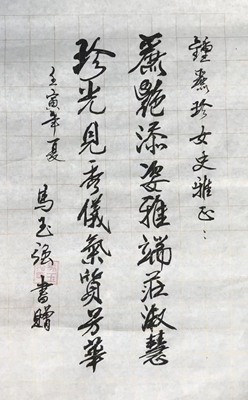 鍾麗珍女史雅正：
麗艷添姿雅端莊淑慧
珍光見秀儀氣質芳華
壬寅年夏
馬玉強書贈